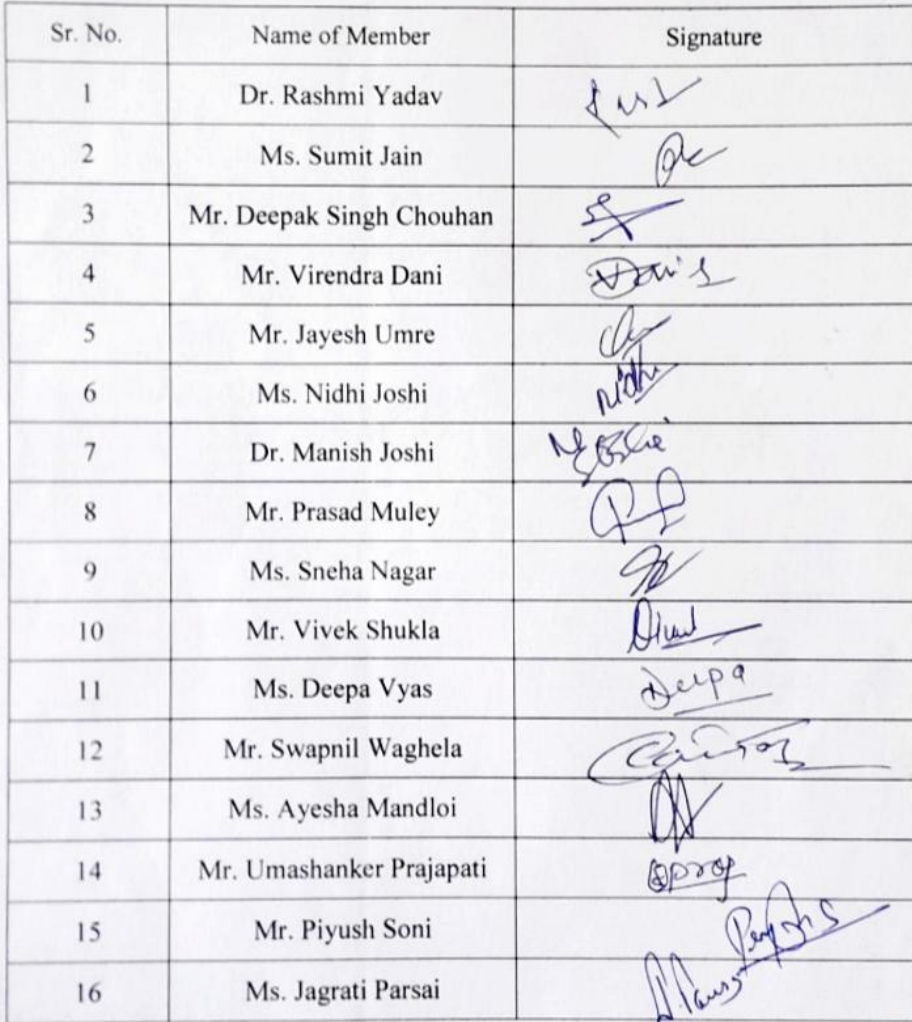 Sr. No. Name of Member Signature
1 Dr. Rashmi Yadav
2 Ms. Sumit Jain
3 Mr. Deepak Singh Chouhan
4 Mr. Virendra Dani
5 Mr. Jayesh Umre
6 Ms. Nidhi Joshi Nidhi
7 Dr. Manish Joshi
8 Mr. Prasad Muley
9 Ms. Sneha Nagar
10 Mr. Vivek Shukla
11 Ms. Deepa Vyas Deepa
12 Mr. Swapnil Waghela
13 Ms. Ayesha Mandloi
14 Mr. Umashanker Prajapati
15 Mr. Piyush Soni
16 Ms. Jagrati Parsai